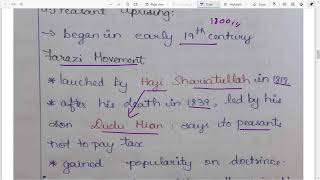 Peasant Uprising:
1800's
→ began in early 19th century
Farazi Movement
* lauched by Haji Shariatullah in 1819
* after his death in 1839, led by his
son Dudu Mian, says do peasants
not to pay tax
* gained popularity on doctrine: